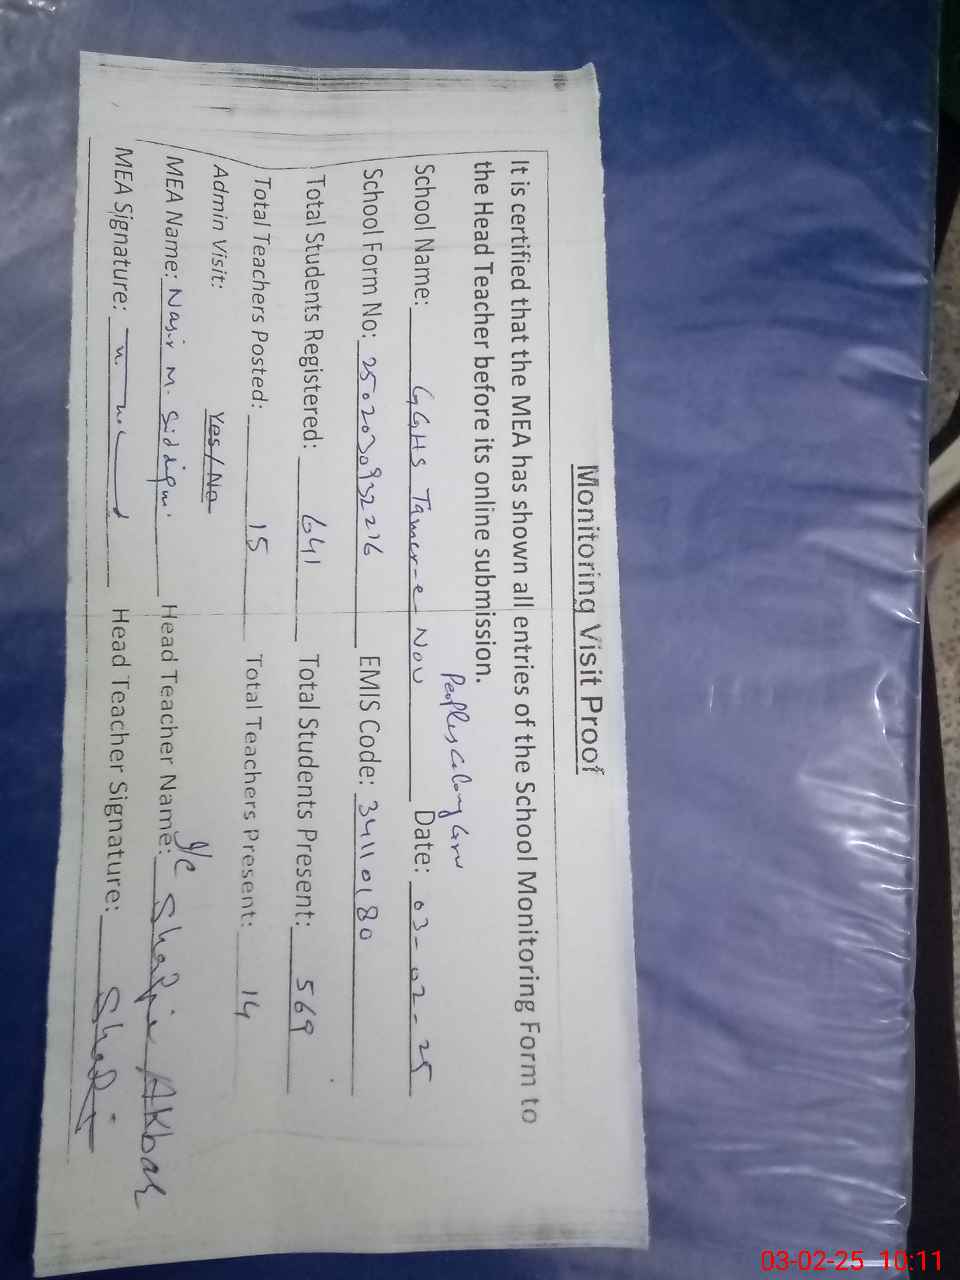 Monitoring Visit Proof
It is certified that the MEA has shown all entries of the School Monitoring Form to
the Head Teacher before its online submission.
Peoples Colony Grw
School Name: GGHS Tameer-e-Nou Date: 03-02-25
School Form No: 2502030932216 EMIS Code: 34110180
Total Students Registered: 641 Total Students Present: 569
Total Teachers Posted: 15 Total Teachers Present: 14
Admin Visit: Yes/No
MEA Name: Nasir M. Siddiqui Head Teacher Name: I/C Akbar
MEA Signature: Head Teacher Signature:
03-02-25 10:11